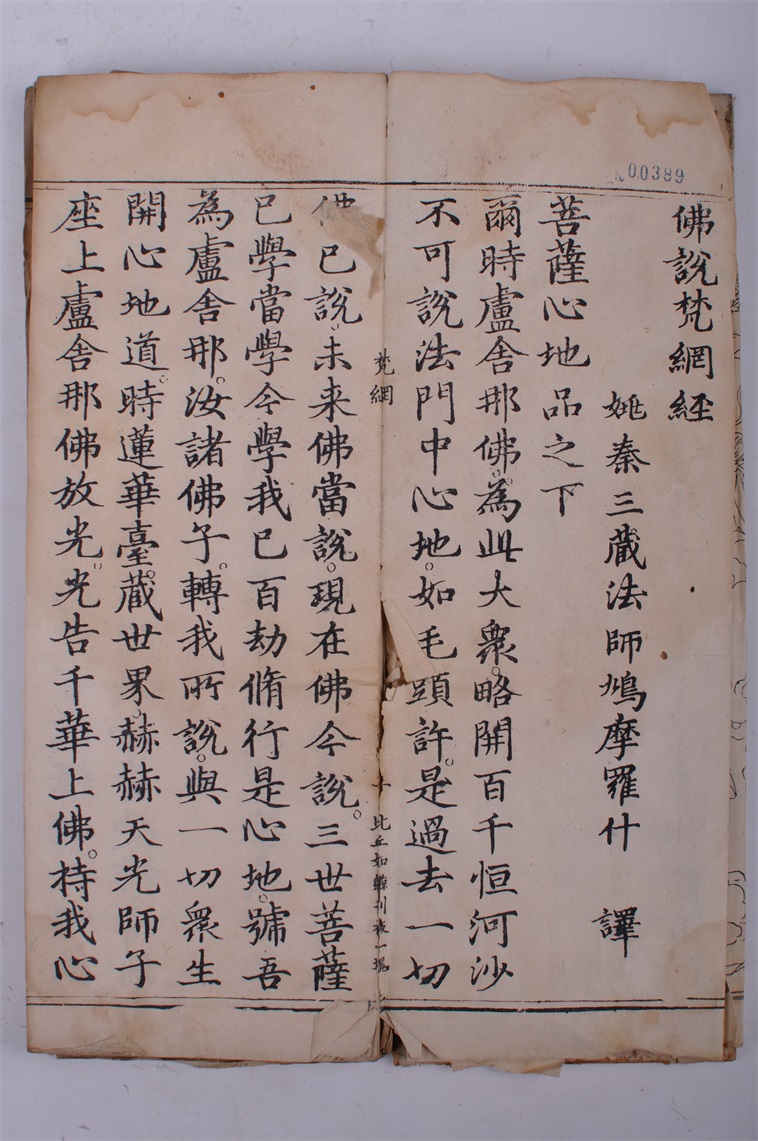 00389
佛說梵網經
姚秦三藏法師鳩摩羅什 譯
菩薩心地品之下
爾時盧舍那佛。為此大衆。略開百千恒河沙
不可說法門中心地。如毛頭許。是過去一切
佛已說。未来佛當說。現在佛今說。三世菩薩
已學當學今學我已百劫脩行是心地。號吾
為盧舍那。汝諸佛子。轉我所說。與一切衆生
開心地道。時蓮華臺。藏世界。赫赫天光師子
座上盧舍那佛放光。光告千華上佛。持我心
梵網
比丘如 刊板一塊